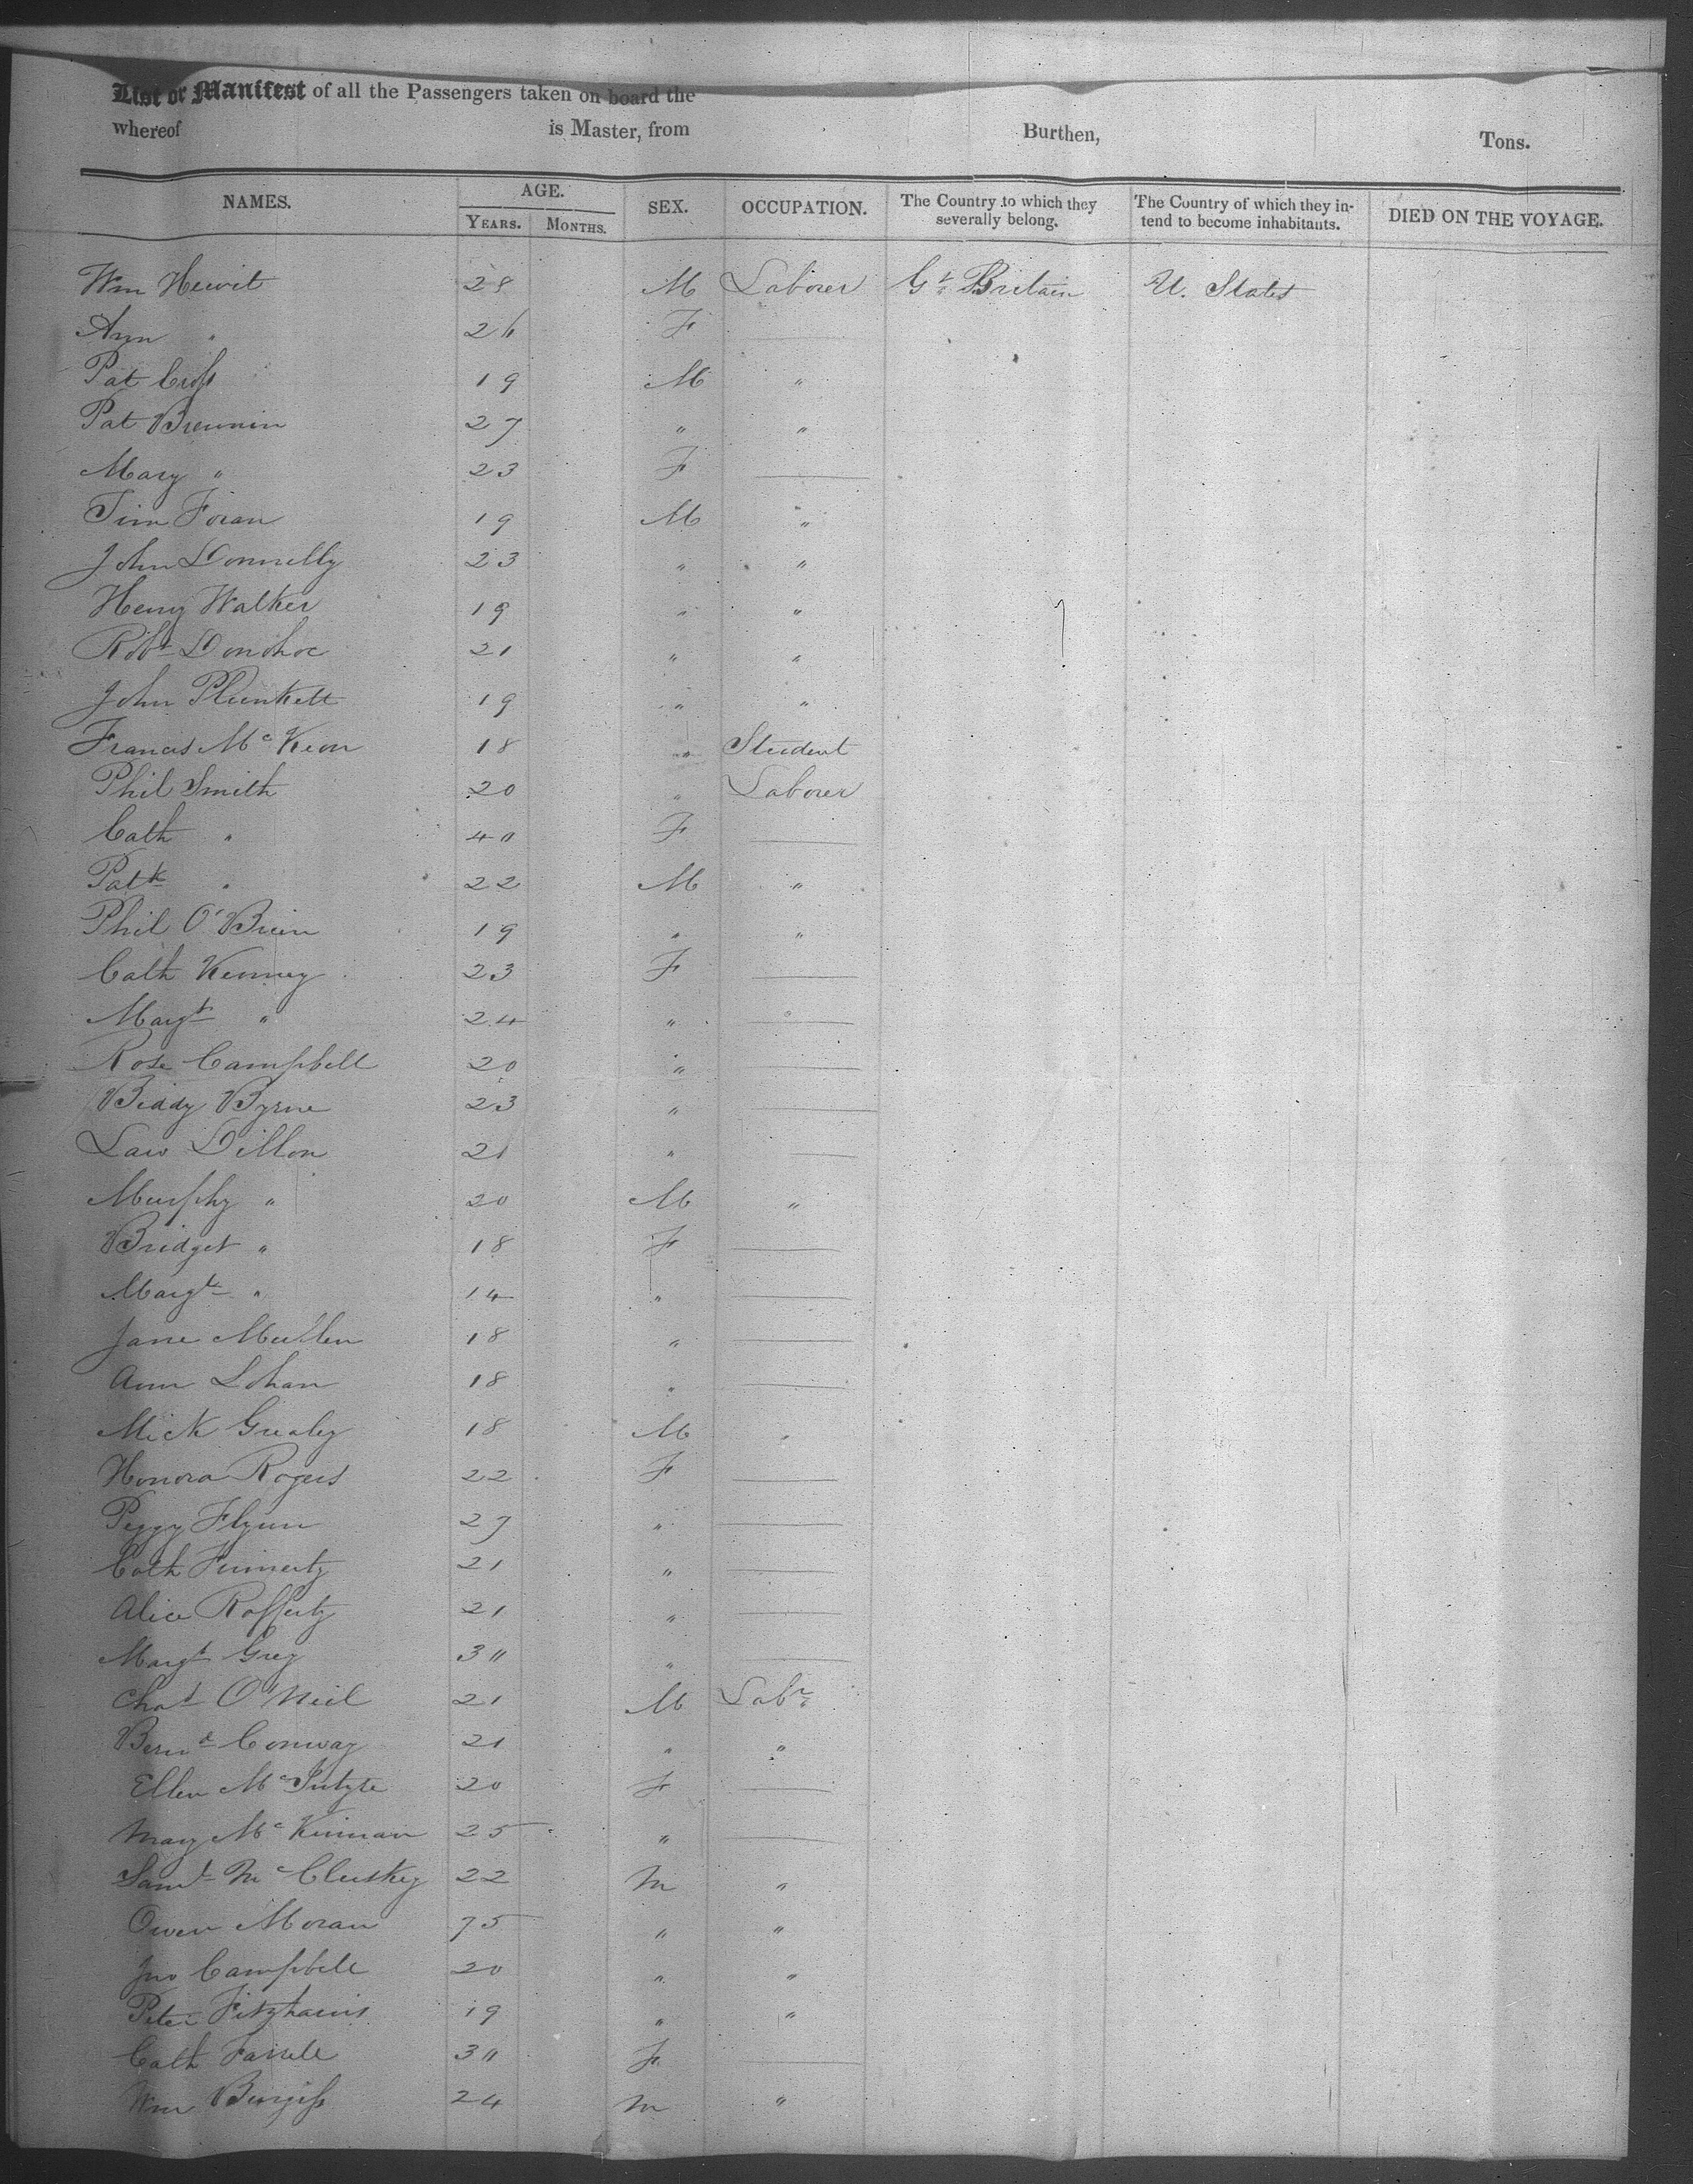 List or Manifest of all the Passengers taken on board the
whereof is Master, from Burthen, Tons.
NAMES. AGE. YEARS. MONTHS. SEX. OCCUPATION. The Country to which they severally belong. The Country of which they intend to become inhabitants. DIED ON THE VOYAGE.
Wm Hewit 28 M Laborer Gt Britain U. States
Ann " 26 F —
Pat 19 M "
Pat Brennin 27 " "
Mary " 23 F —
Tim Foran 19 M "
John Donnelly 23 " "
Henry Walker 19 " "
Robt Donohoe 21 " "
John Plunkett 19 " "
Francis McKeon 18 " Student
Phil Smith 20 " Laborer
Cath " 40 F —
Patk " 22 M "
Phil O'Brien 19 " "
Cath Kenney 23 F —
Margt " 24 " —
Rose Campbell 20 " —
Biddy Byrne 23 " —
Law Dillon 21 " —
Murphy " 20 M "
Bridget " 18 F —
Margt " 14 " —
Jane Mullen 18 " —
Ann Lohan 18 " —
Mick Grealey 18 M "
Honora Rogers 22 F —
Peggy Flynn 27 " —
Cath Finnerty 21 " —
Alice Rafferty 21 " —
Margt Grey 30 " —
Chas O'Neil 21 M Labr
Bernd Conway 21 " "
Ellen McIntyre 20 F —
Mary McKinnan 25 " —
Saml McCluskey 22 M "
Owen Moran 75 " "
Jno Campbell 20 " "
Peter Fitzharris 19 " "
Cath Farrell 30 F —
Wm Burgiss 24 M "